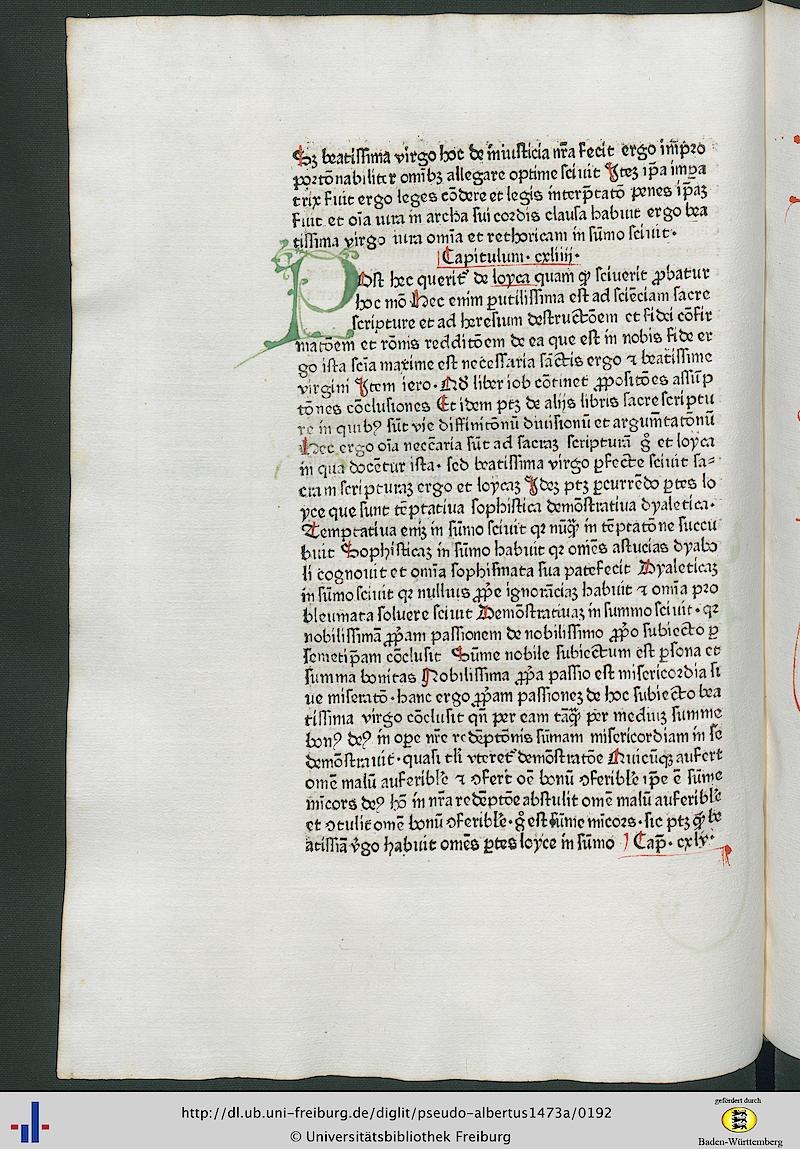 Sꝫ beatissima virgo hoc de iniusticia nr̄a fecit ergo im̄pro
portōnabiliter omībꝫ allegare optime sciuit Itez ip̄a impa
trix fuit ergo leges cōdere et legis interp̄tatō penes ip̄aꝫ
fuit et oīa iura in archa sui cordis clausa habuit ergo bea
tissima virgo iura omīa et rethoricam in sūmo sciuit·
Capitulum· cxliiij·
Post hec querit̄ de loyca quam ꝙ sciuerit ꝓbatur
hoc mō Hec enim ꝑutilissima est ad sciēciam sacre
scripture et ad heresium destructōem et fidei cōfir
matōem et rōnis redditōem de ea que est in nobis fide er
go ista scīa maxime est necessaria sāctis ergo ⁊ beatissime
virgini Item iero· Ad liber iob cōtinet ꝓpositōes assūp
tōnes cōclusiones Et idem ptꝫ de alijs libris sacre scriptu
re in quibꝰ sūt vie diffinitōnū diuisionū et argum̄tatōnū
Hec ergo oīa necc̄aria sūt ad sacraꝫ scripturā g̊ et loyca
in qua docētur ista· sed beatissima virgo ꝑfecte sciuit sa⸗
cram scripturaꝫ ergo et loycaꝫ Ideꝫ ptꝫ ꝑcurrēdo ꝑtes lo
yce que sunt tēptatiua sophistica demōstratiua dyaletica·
Temptatiua eniꝫ in sūmo sciuit qꝛ nūꝗ̄ in tēptatōne succu
buit Sophisticaꝫ in sūmo habuit qꝛ omēs astucias dyabo
li cognouit et omīa sophismata sua patefecit Dyaleticaꝫ
in sūmo sciuit qꝛ nullius ꝓp̄e ignorāciaꝫ habuit ⁊ omīa pro
bleumata soluere sciuit Demōstratiuaꝫ in summo sciuit· qꝛ
nobilissimā ꝓp̄am passionem de nobilissimo ꝓp̄o subiecto ꝑ
semetip̄am cōclusit Sūme nobile subiectum est ꝑsona et
summa bonitas Nobilissima ꝓp̄a passio est misericordia si
ue miseratō· hanc ergo ꝓp̄am passioneꝫ de hoc subiecto bea
tissima virgo cōclusit qn̄ per eam tāꝗ̄ per mediuꝫ summe
bonꝰ deꝰ in oꝑe nr̄e redēptōnis sūmam misericordiam in se
demōstrauit· quasi tli vteret̄ demōstratōe Quicūqꝫ aufert
omē malū auferibl̄e ⁊ ꝯfert oē bonū ꝯferibl̄e ip̄e ē sūme
mīcors deꝰ hō in nr̄a redēptōe abstulit omē malū auferibl̄e
et ꝯtulit omē bonū ꝯferibl̄e· g̊ est sūme mīcors· sic ptꝫ ꝙ be
atissīa v̄go habuit omēs ꝑtes loyce in sūmo Cap̄· cxlv·
http://dl.ub.uni-freiburg.de/diglit/pseudo-albertus1473a/0192
© Universitätsbibliothek Freiburg
gefördert durch
Baden-Württemberg